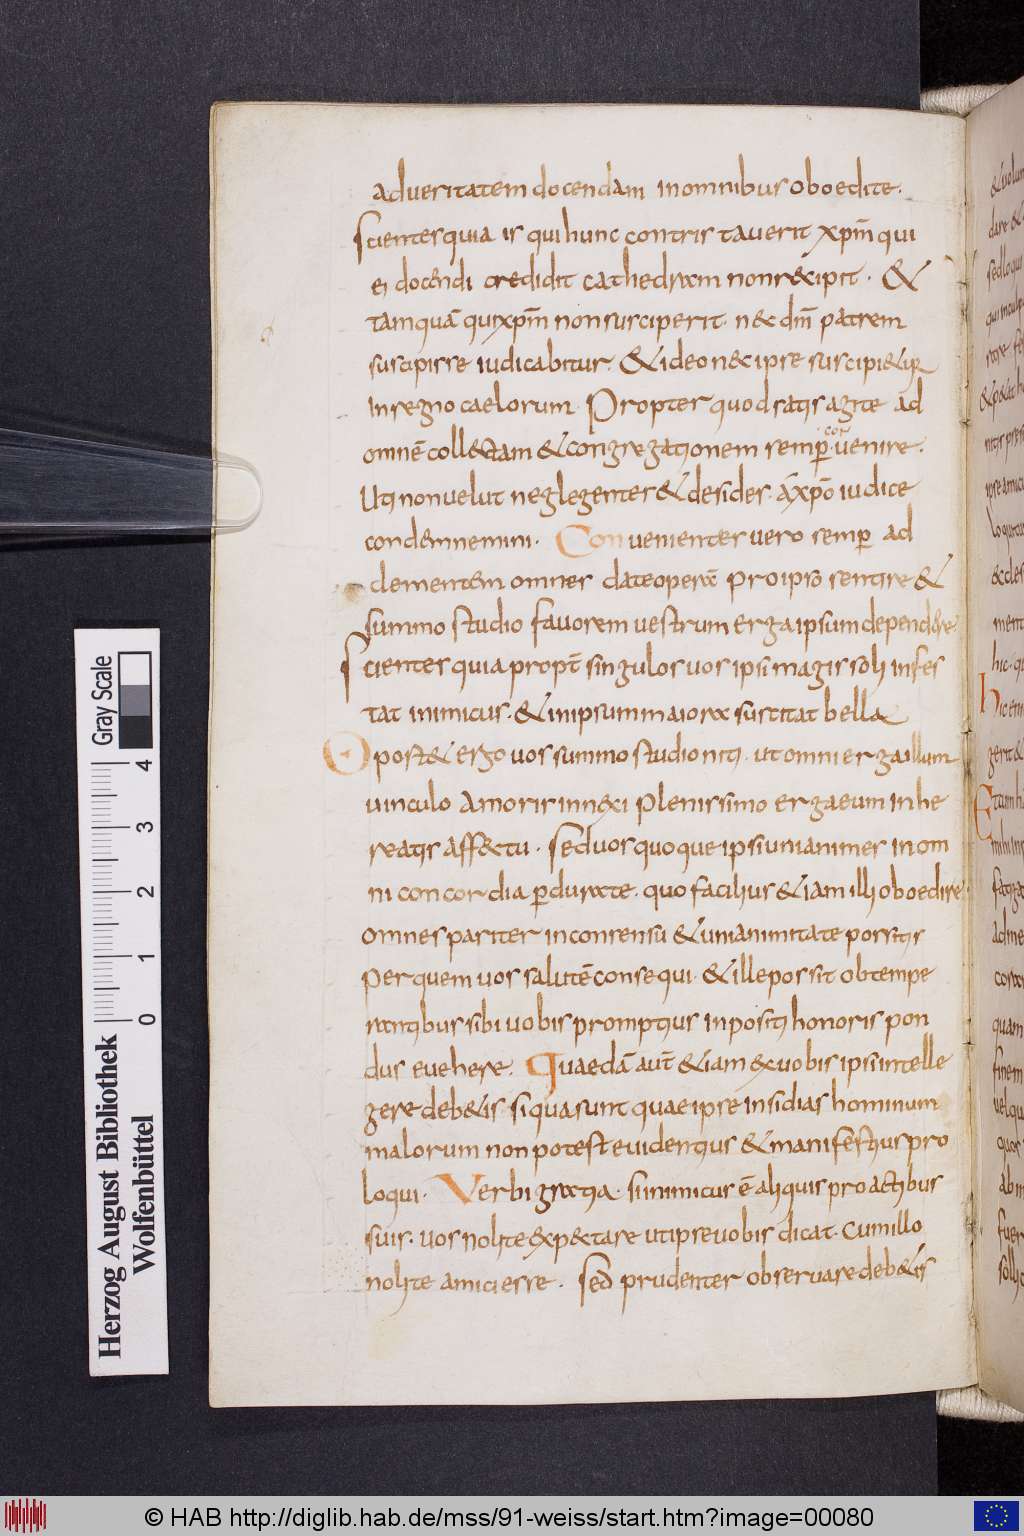 ad veritatem docendam in omnibus oboedite.
scientes quia is qui hunc contristaverit xpm̄ qui
ei docendi credidit cathedram non recipit. &
tamquā qui xpm̄ non susciperit. nec dm̄ patrem
suscipisse iudicabitur. & ideo nec ipse suscipi&ur
in regno caelorum. Propter quod satis agite ad
omnē coll&am & congregationem semp̄. con venire.
Uti non velut neglegenter & desider. a xpo iudice
condemnemini. Convenientes vero semp̄ ad
clementem omnes date operā pro ipso sentire &
summo studio favorem vestrum erga ipsum depend&re.
scientes quia propt̄ singulos vos ipsi magis soli infes
tat inimicus. & in ipsum maiora suscitat bella
Oport& ergo vos summo studio niti. ut omni erga illum
vinculo amoris innexi plenissimo erga eum inhe
reatis aff&ctu. sed vos quoque ipsi unianimes in om
ni concordia p̄durate. quo facilius & iam illi oboedire
omnes pariter in consensu & unanimitate possitis
per quem vos salutē consequi. & ille possit obtempe
rantibus sibi vobis promptius inpositi honoris pon
dus evehere. Quaedā aut̄ & iam ex vobis ipsi intelle
gere deb&is si qua sunt quae ipse insidias hominum
malorum non potest evidentius & manifestius pro
loqui. Verbi gratia. si inimicus ē aliquis pro actibus
suis. vos nolite exp&ctare ut ipse vobis dicat. cum illo
nolite amici esse. Sed prudenter observare deb&is
Herzog August Bibliothek
Wolfenbüttel
Gray Scale
0 1 2 3 4
© HAB http://diglib.hab.de/mss/91-weiss/start.htm?image=00080